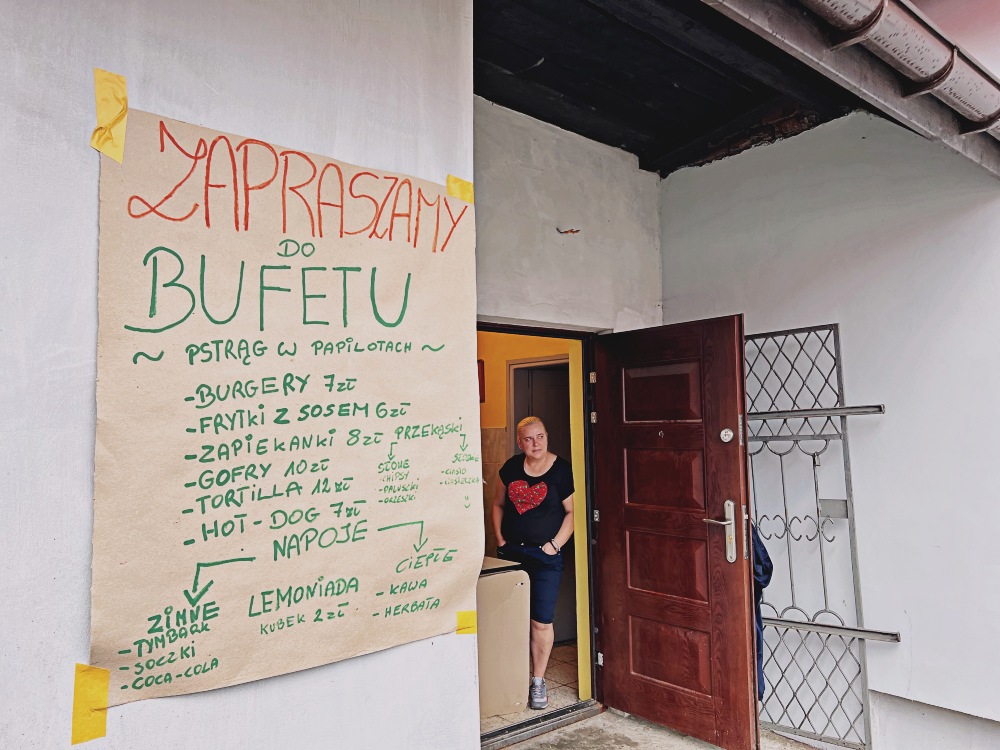 ZAPRASZAMY
DO
BUFETU
~ PSTRĄG W PAPILOTACH ~
-BURGERY 7zł
-FRYTKI Z SOSEM 6zł
-ZAPIEKANKI 8zł
PRZEKĄSKI
-GOFRY 10zł
-TORTILLA 12zł
-HOT-DOG 7zł
SŁONE
-CHIPSY
-PALUSZKI
-ORZESZKI
SŁODKIE
-CIASTO
NAPOJE
ZIMNE
-TYMBARK
-SOCZKI
-COCA-COLA
LEMONIADA
KUBEK 2zł
CIEPŁE
-KAWA
-HERBATA